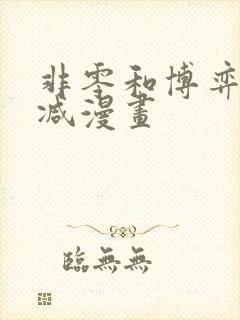 非零和博弈
减漫畫
臨無無